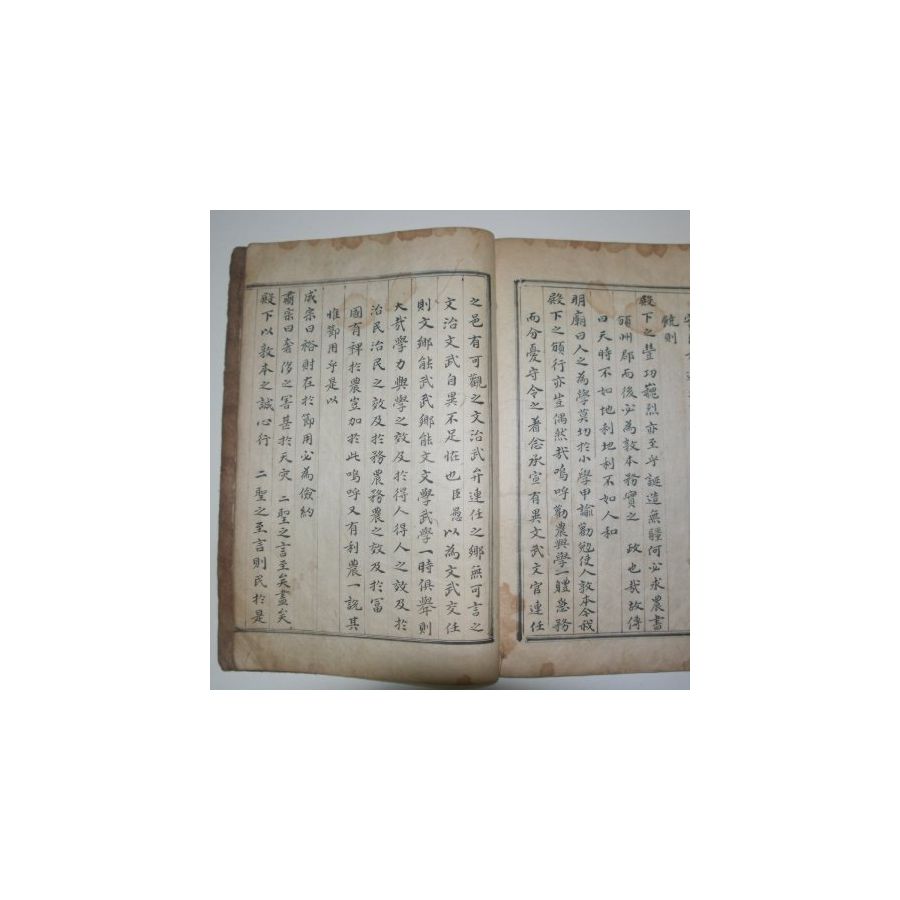 饒則
殿下之豊功巍烈亦至乎誕造無疆何必求農書
頒州郡而後必爲敦本務實之 政也哉故傳
曰天時不如地利地利不如人和
明廟曰人之為學莫切於小學申諭勸勉使人敦本今我
殿下之頒行亦豈偶然哉嗚呼勸農興學一體急務
而分憂守令之著念承宣有異文武文官連任
之邑有可觀之文治武弁連任之鄉無可言之
文治文武自異不足恠也臣愚以為文武交任
則文鄉能武武鄉能文文學武學一時俱舉則
大哉學力興學之效及於得人得人之效及於
治民治民之效及於務農務農之效及於冨
國有裨於農豈加於此嗚呼又有利農一說其
惟節用乎是以
成宗曰裕財在於節用必為儉約
肅宗曰奢侈之害甚於天灾 二聖之言至矣盡矣
殿下以敦本之誠心行 二聖之至言則民於是